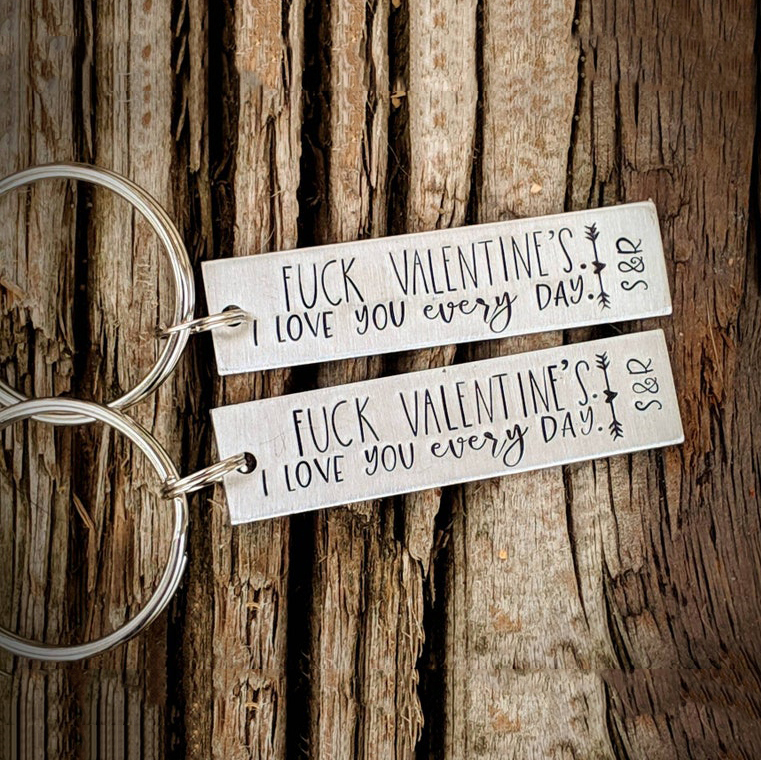 FUCK VALENTINE'S.
I LOVE YOU every DAY.
S&R
FUCK VALENTINE'S.
I LOVE YOU every DAY.
S&R